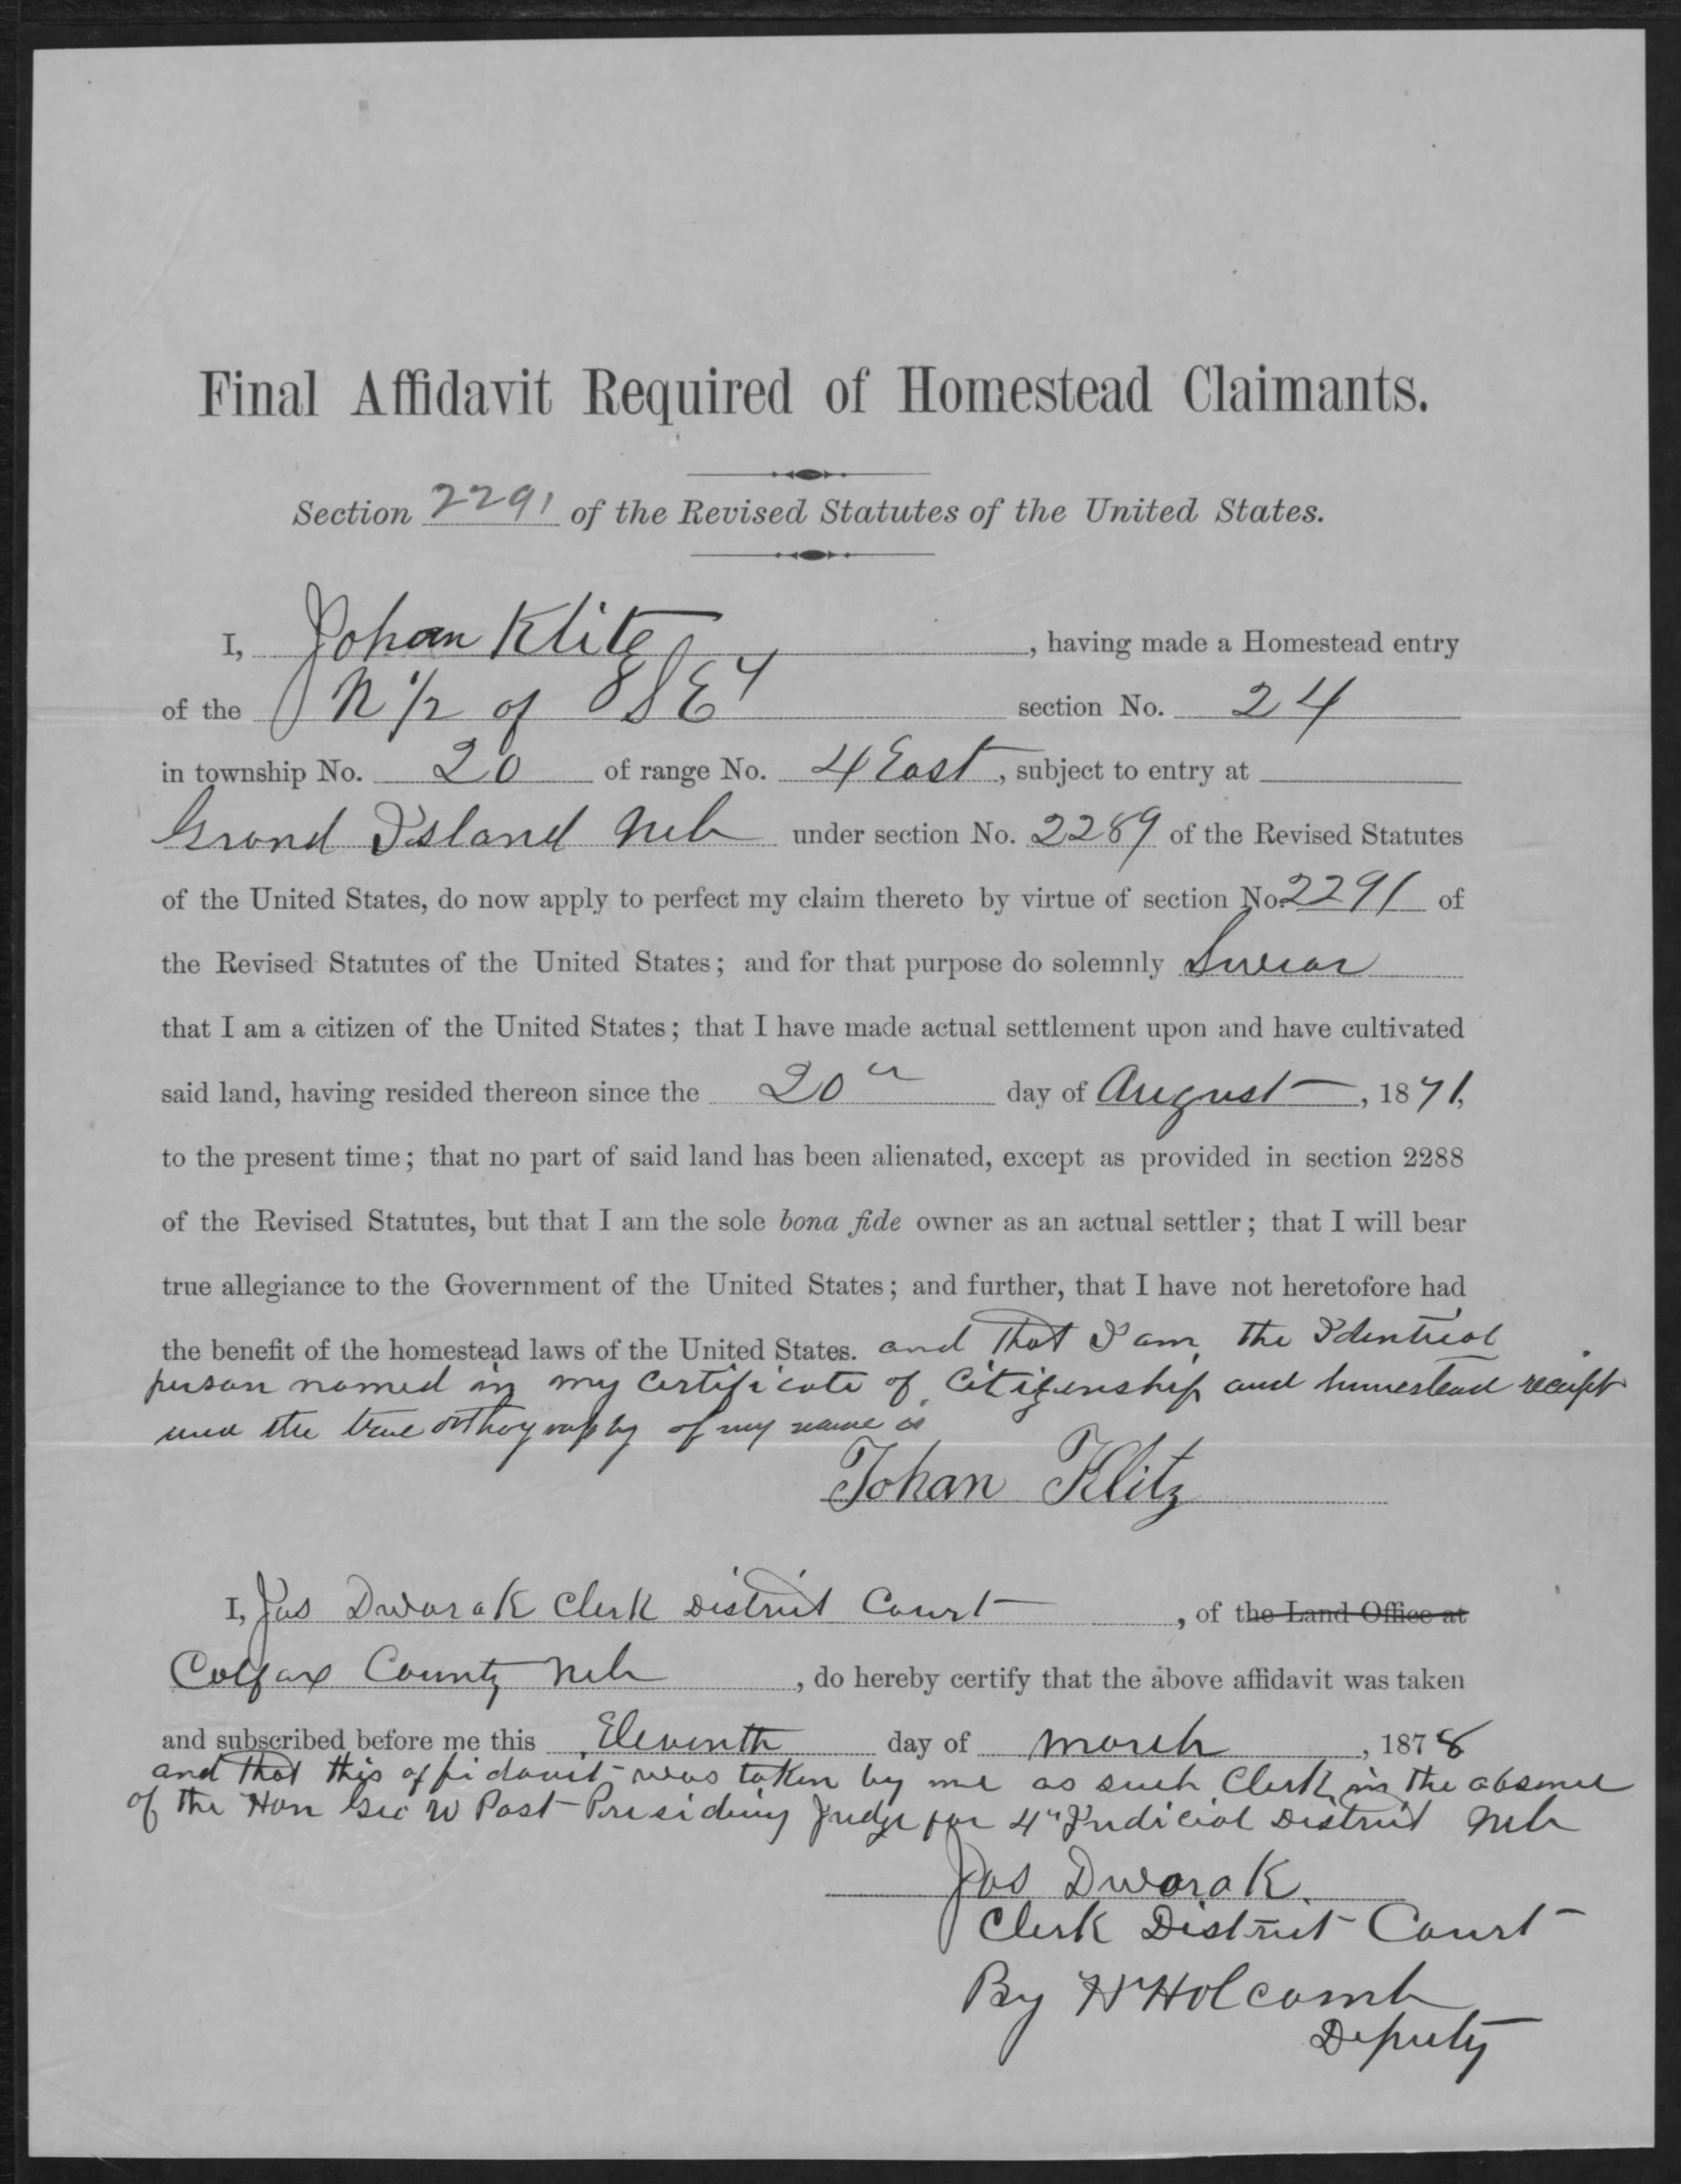 Final Affidavit Required of Homestead Claimants.
Section 2291 of the Revised Statutes of the United States.
I, Johan Klitz, having made a Homestead entry
of the N 1/2 of SE4 section No. 24
in township No. 20 of range No. 4 East, subject to entry at
Grand Island Neb under section No. 2289 of the Revised Statutes
of the United States, do now apply to perfect my claim thereto by virtue of section No. 2291 of
the Revised Statutes of the United States; and for that purpose do solemnly Swear
that I am a citizen of the United States; that I have made actual settlement upon and have cultivated
said land, having resided thereon since the 20th day of August, 1871,
to the present time; that no part of said land has been alienated, except as provided in section 2288
of the Revised Statutes, but that I am the sole bona fide owner as an actual settler; that I will bear
true allegiance to the Government of the United States; and further, that I have not heretofore had
the benefit of the homestead laws of the United States. and that I am the Identical
person named in my Certificate of Citizenship and homestead receipt
and the true orthography of my name is
Johan Klitz
I, Jas Dworak Clerk District Court, of the Land Office at
Colfax County Neb, do hereby certify that the above affidavit was taken
and subscribed before me this Eleventh day of March, 1878
and that this affidavit was taken by me as such Clerk in the absence
of the Hon Geo W Post Presiding Judge for 4th Judicial District Neb
Jas Dworak.
Clerk District Court
By H Holcomb
Deputy